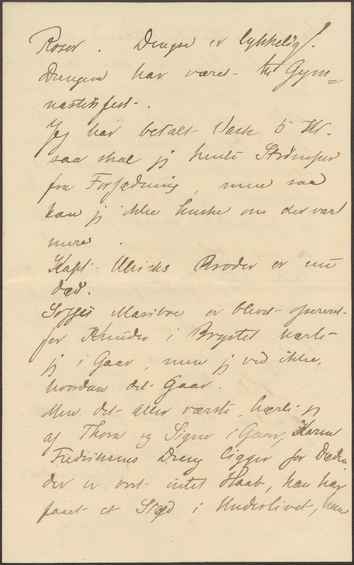 Roser. Drengene er lykkelig!
Drengene har været til Gym=
nastikfest.
Jeg har betalt Vask 5 Kr.
saa skal jeg hente Strømper
fra Forsødning, men saa
kan jeg ikke huske om der var
mere.
Kapt. Ulrichs Broder er nu
død.
Sofies Masibre er blevet opereret
for Knuder i Brystet hørte
jeg i Gaar, men jeg ved ikke,
hvordan det Gaar.
Men det aller værste, hørte jeg
af Thora og Signe i Gaar, Karen
Fredriksens Dreng ligger for Døden
der er vist intet Haab, han har
faaet et Stød i Underlivet, han